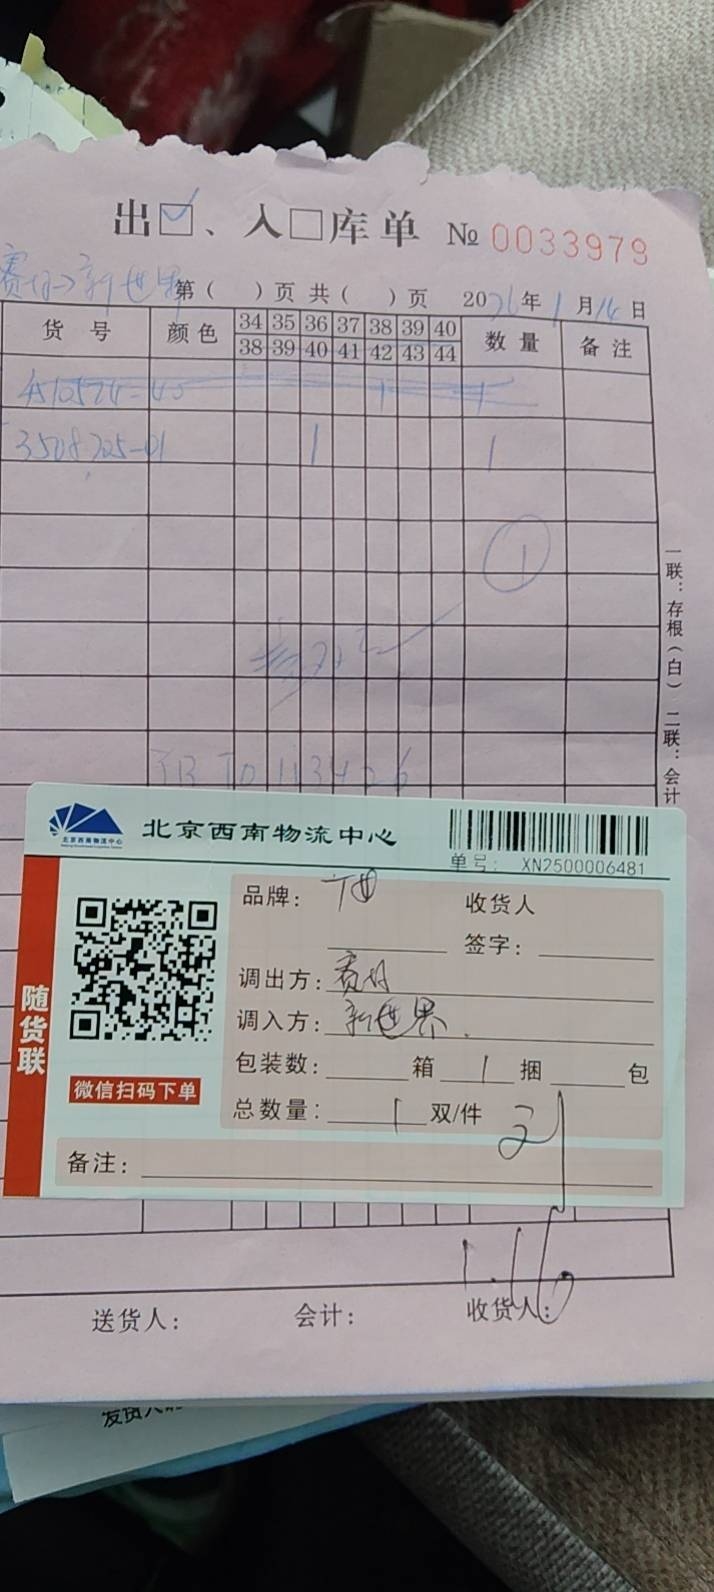 出☑、入□库单 № 0033979
赛特→新世界 第( )页 共( )页 2026年1月14日
货号 颜色 34 35 36 37 38 39 40 数量 备注
38 39 40 41 42 43 44
1 1
3508725-01 1 1
①
一联：存根（白） 二联：会计
TB TO 113426
北京西南物流中心
北京西南物流中心
单号： XN2500006481
品牌： 收货人
签字：
调出方：赛特
调入方：新世界
包装数： 箱 1 捆 包
总数量： 1 双/件
随货联
微信扫码下单
备注：
1.16
送货人： 会计： 收货人：